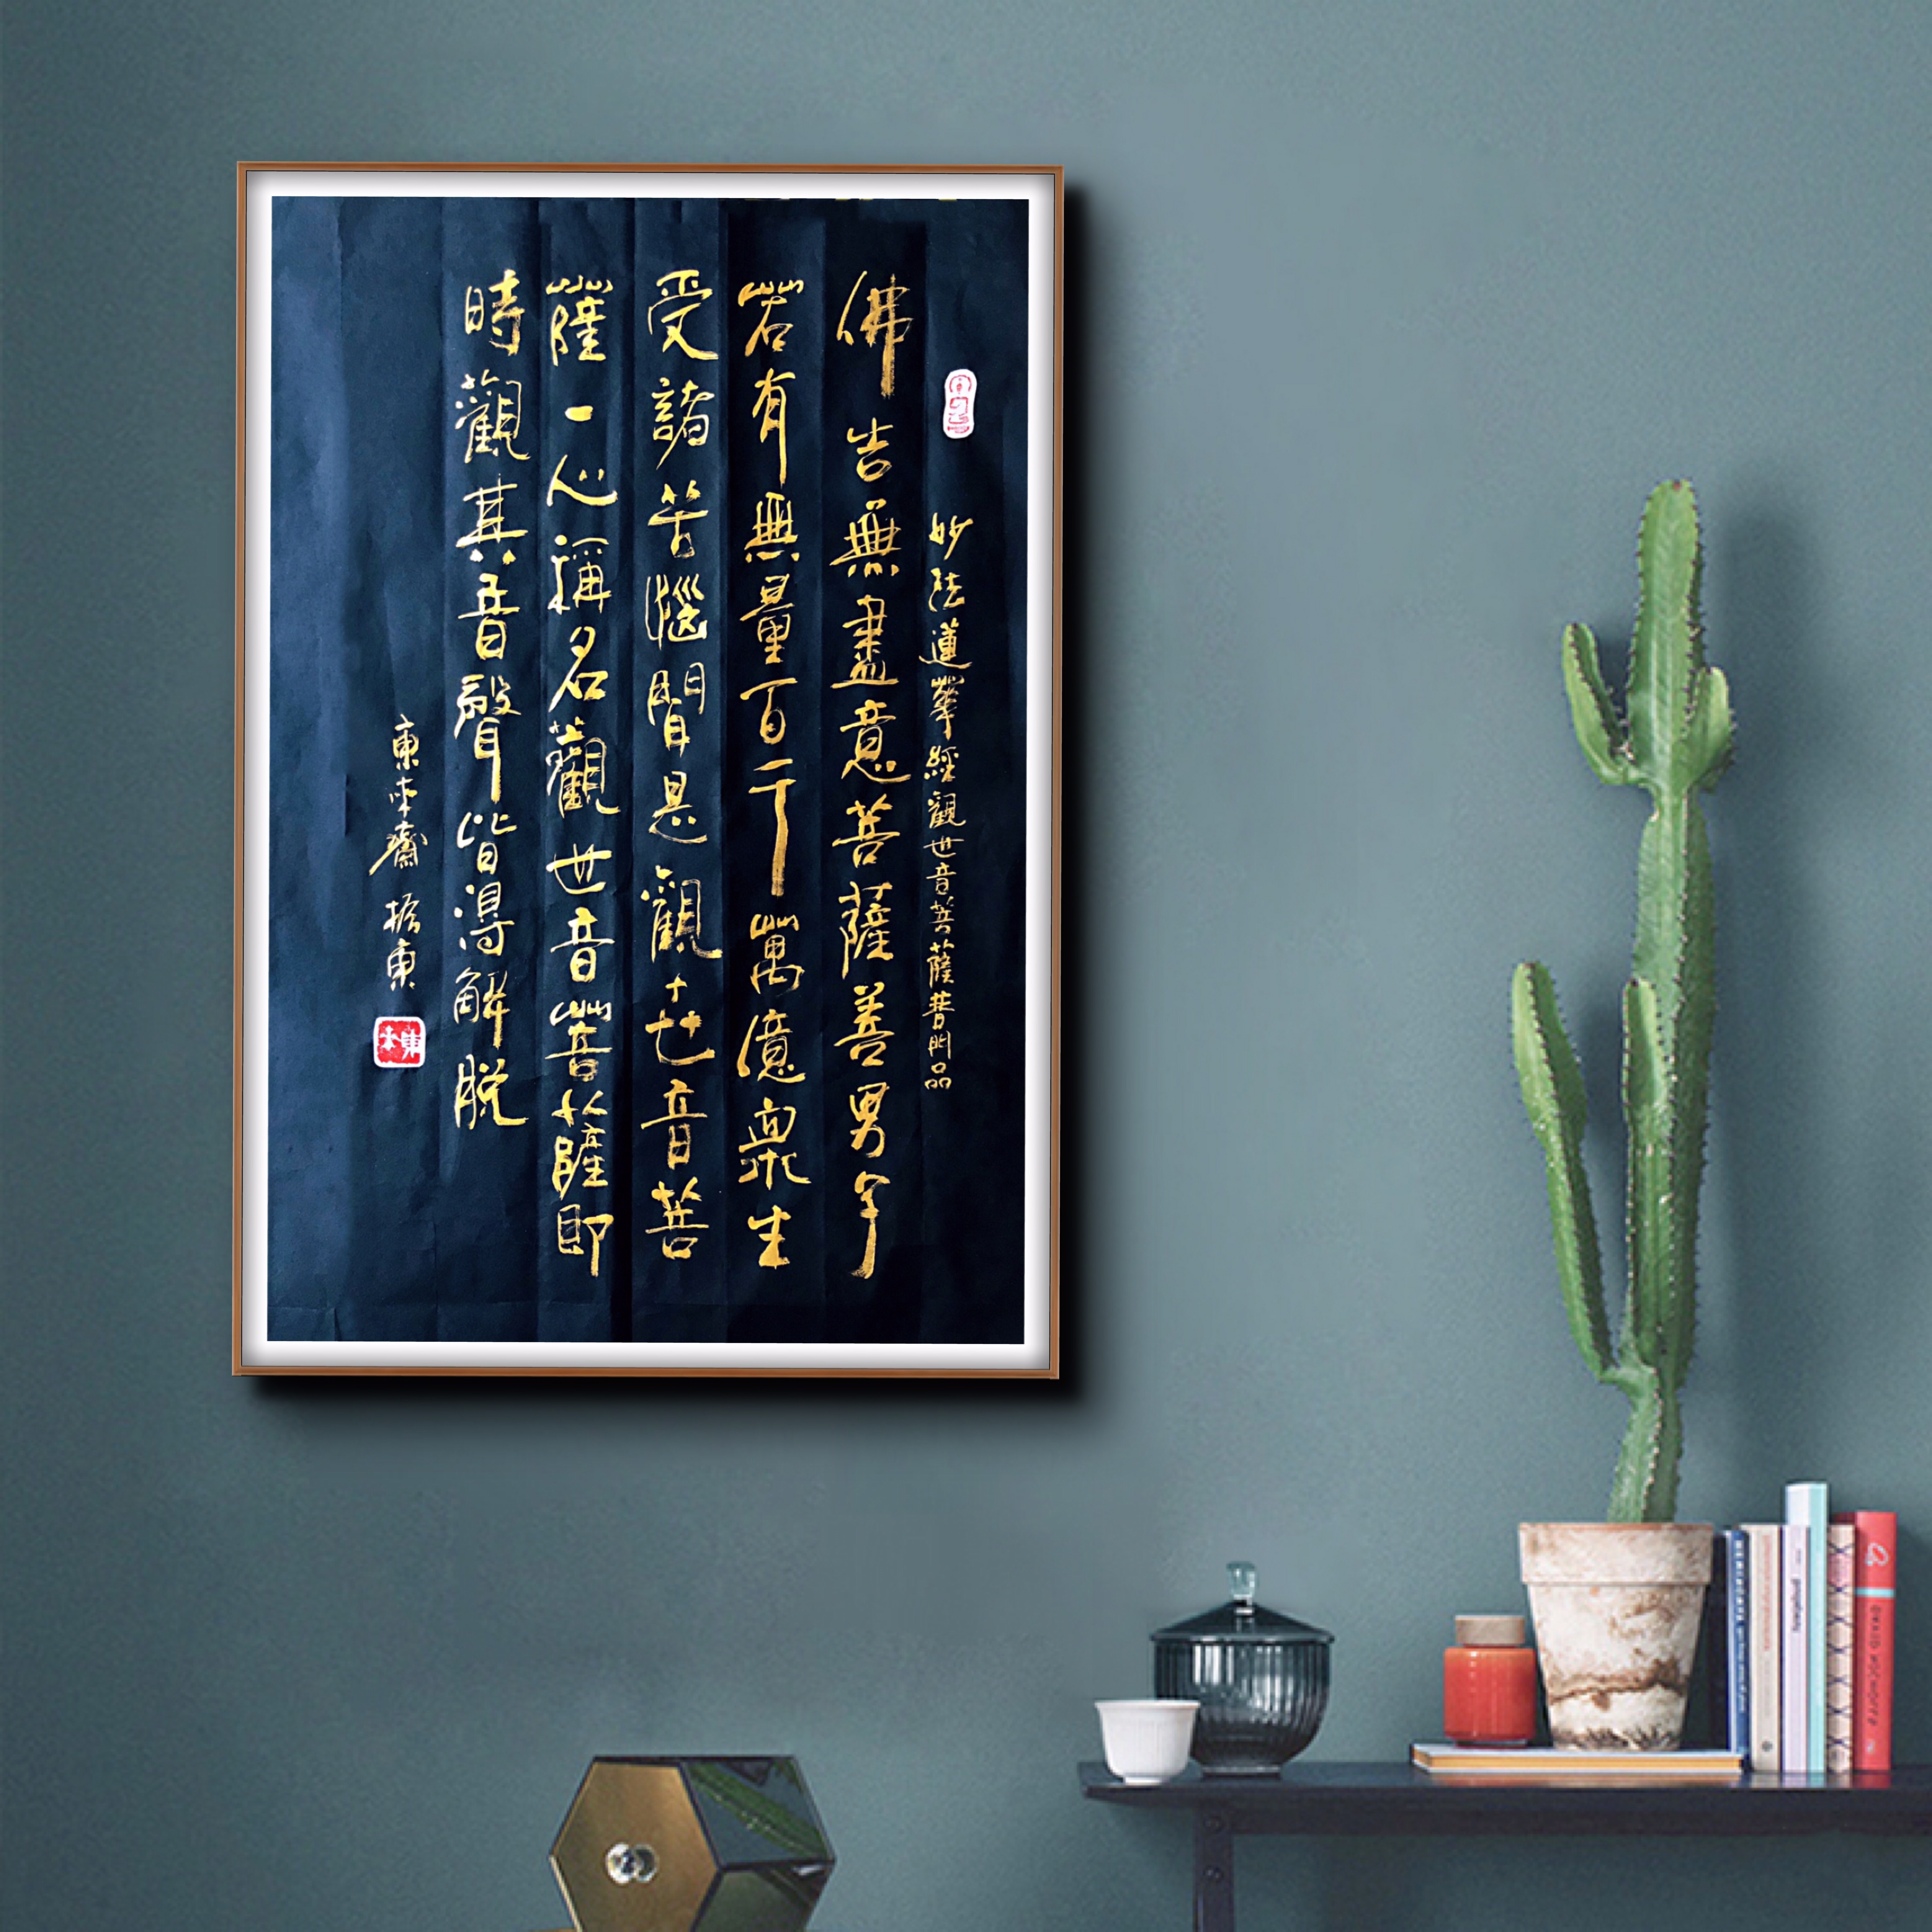 妙法蓮華經觀世音菩薩普門品
佛告無盡意菩薩善男子
若有無量百千萬億眾生
受諸苦惱聞是觀世音菩
薩一心稱名觀世音菩薩即
時觀其音聲皆得解脫
東本齋 東
東本